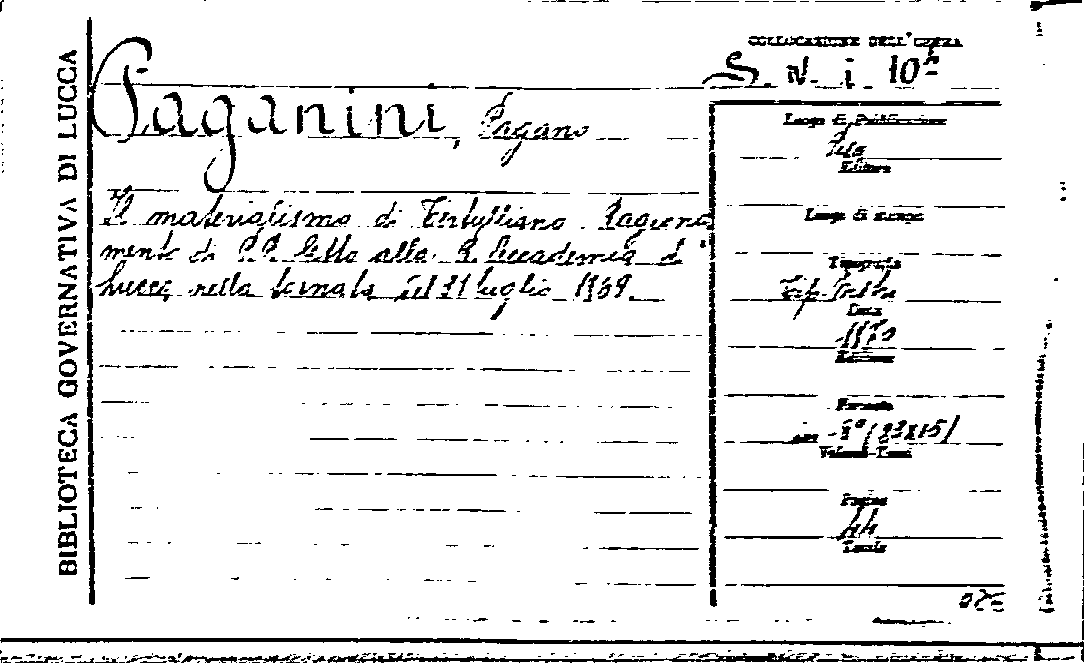 BIBLIOTECA GOVERNATIVA DI LUCCA
COLLOCAZIONE DELL'OPERA
Paganini, Pagano
Il materialismo di Tertulliano. Ragiona
mento di P.P. letto alla R. Accademia di
Lucca nella tornata del 31 luglio 1869.
Luogo di Pubblicazione
Pisa
Editore
Luogo di stampa
Tipografia
Tip.
Data
1870
Edizione
Formato
in-8° (23x15)
Volumi-Tomi
Pagine
44
Tavole